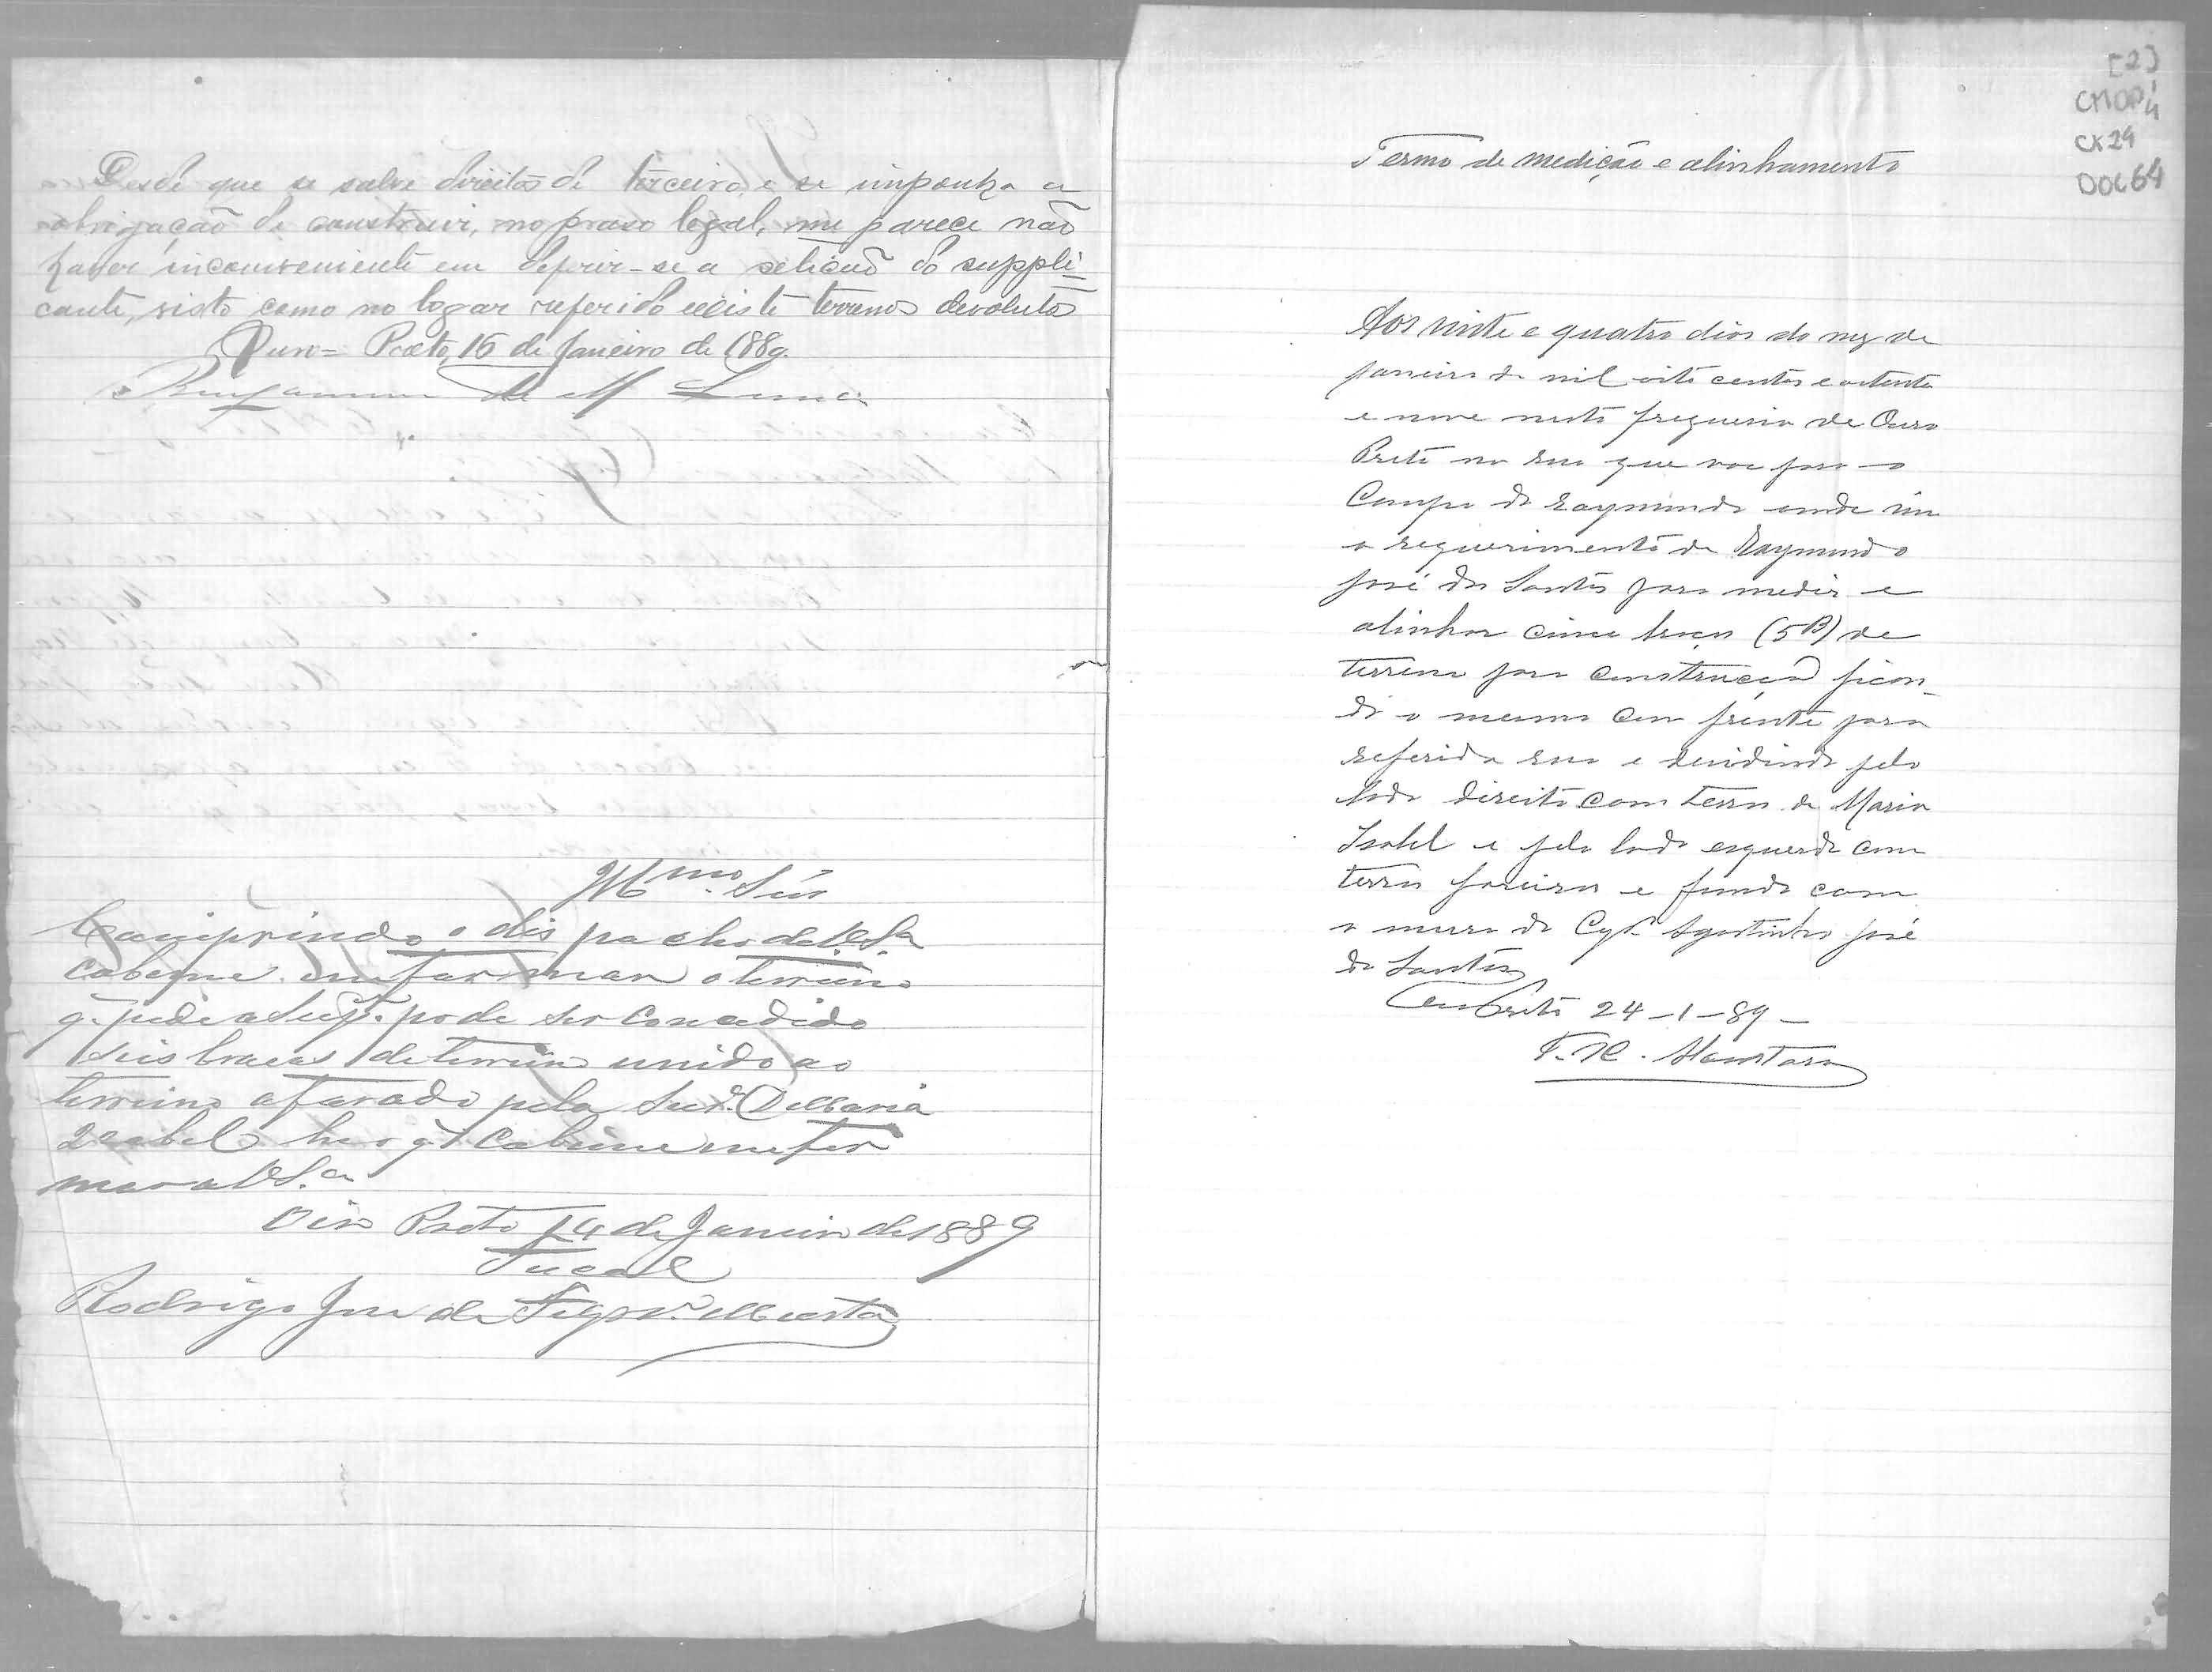 Desde que se salve direitos de terceiro, e se imponha a
obrigação de construir, no praso legal, me parece não
haver inconveniente em deferir-se a petição do suppli=
cante, visto como no logar referido existe terrenos devolutos
Ouro=Preto, 16 de Janeiro de 1889.
Benjamim de M Lima
Illmo. Snr
Comprindo o dispacho de V.Sa
cabeme emformar o terreino
q. pede a Sup.e pode ser Concedido
seis bracas de terreino unido ao
terreino aforado pela Snr.a D Maria
Izabel he o q. Cabeme emfor
mar a V S.a
Oiro Preto 14 de Janeiro de 1889
Fiscal
Rodrigo Jose de Figr.do Murta
[2]
CMOP
CX24
DOC64
Termo de medição e alinhamento
Aos vinte e quatro dias do mez de
janeiro de mil oito centos e oitenta
e nove nesta freguesia de Ouro
Preto na rua que vae para o
Campo do Raymundo onde vim
a requerimento de Raymundo
José dos Santos para medir e
alinhar cinco braças (5B) de
terreno para construcção fican-
do o mesmo com frente para
referida rua e devidindo pelo
lado direito com terras de Maria
Isabel e pelo lado esquerdo com
terras foreiras e fundo com
o muro do Cap.m Agostinho José
dos Santos
Ouro Preto 24-1-89-